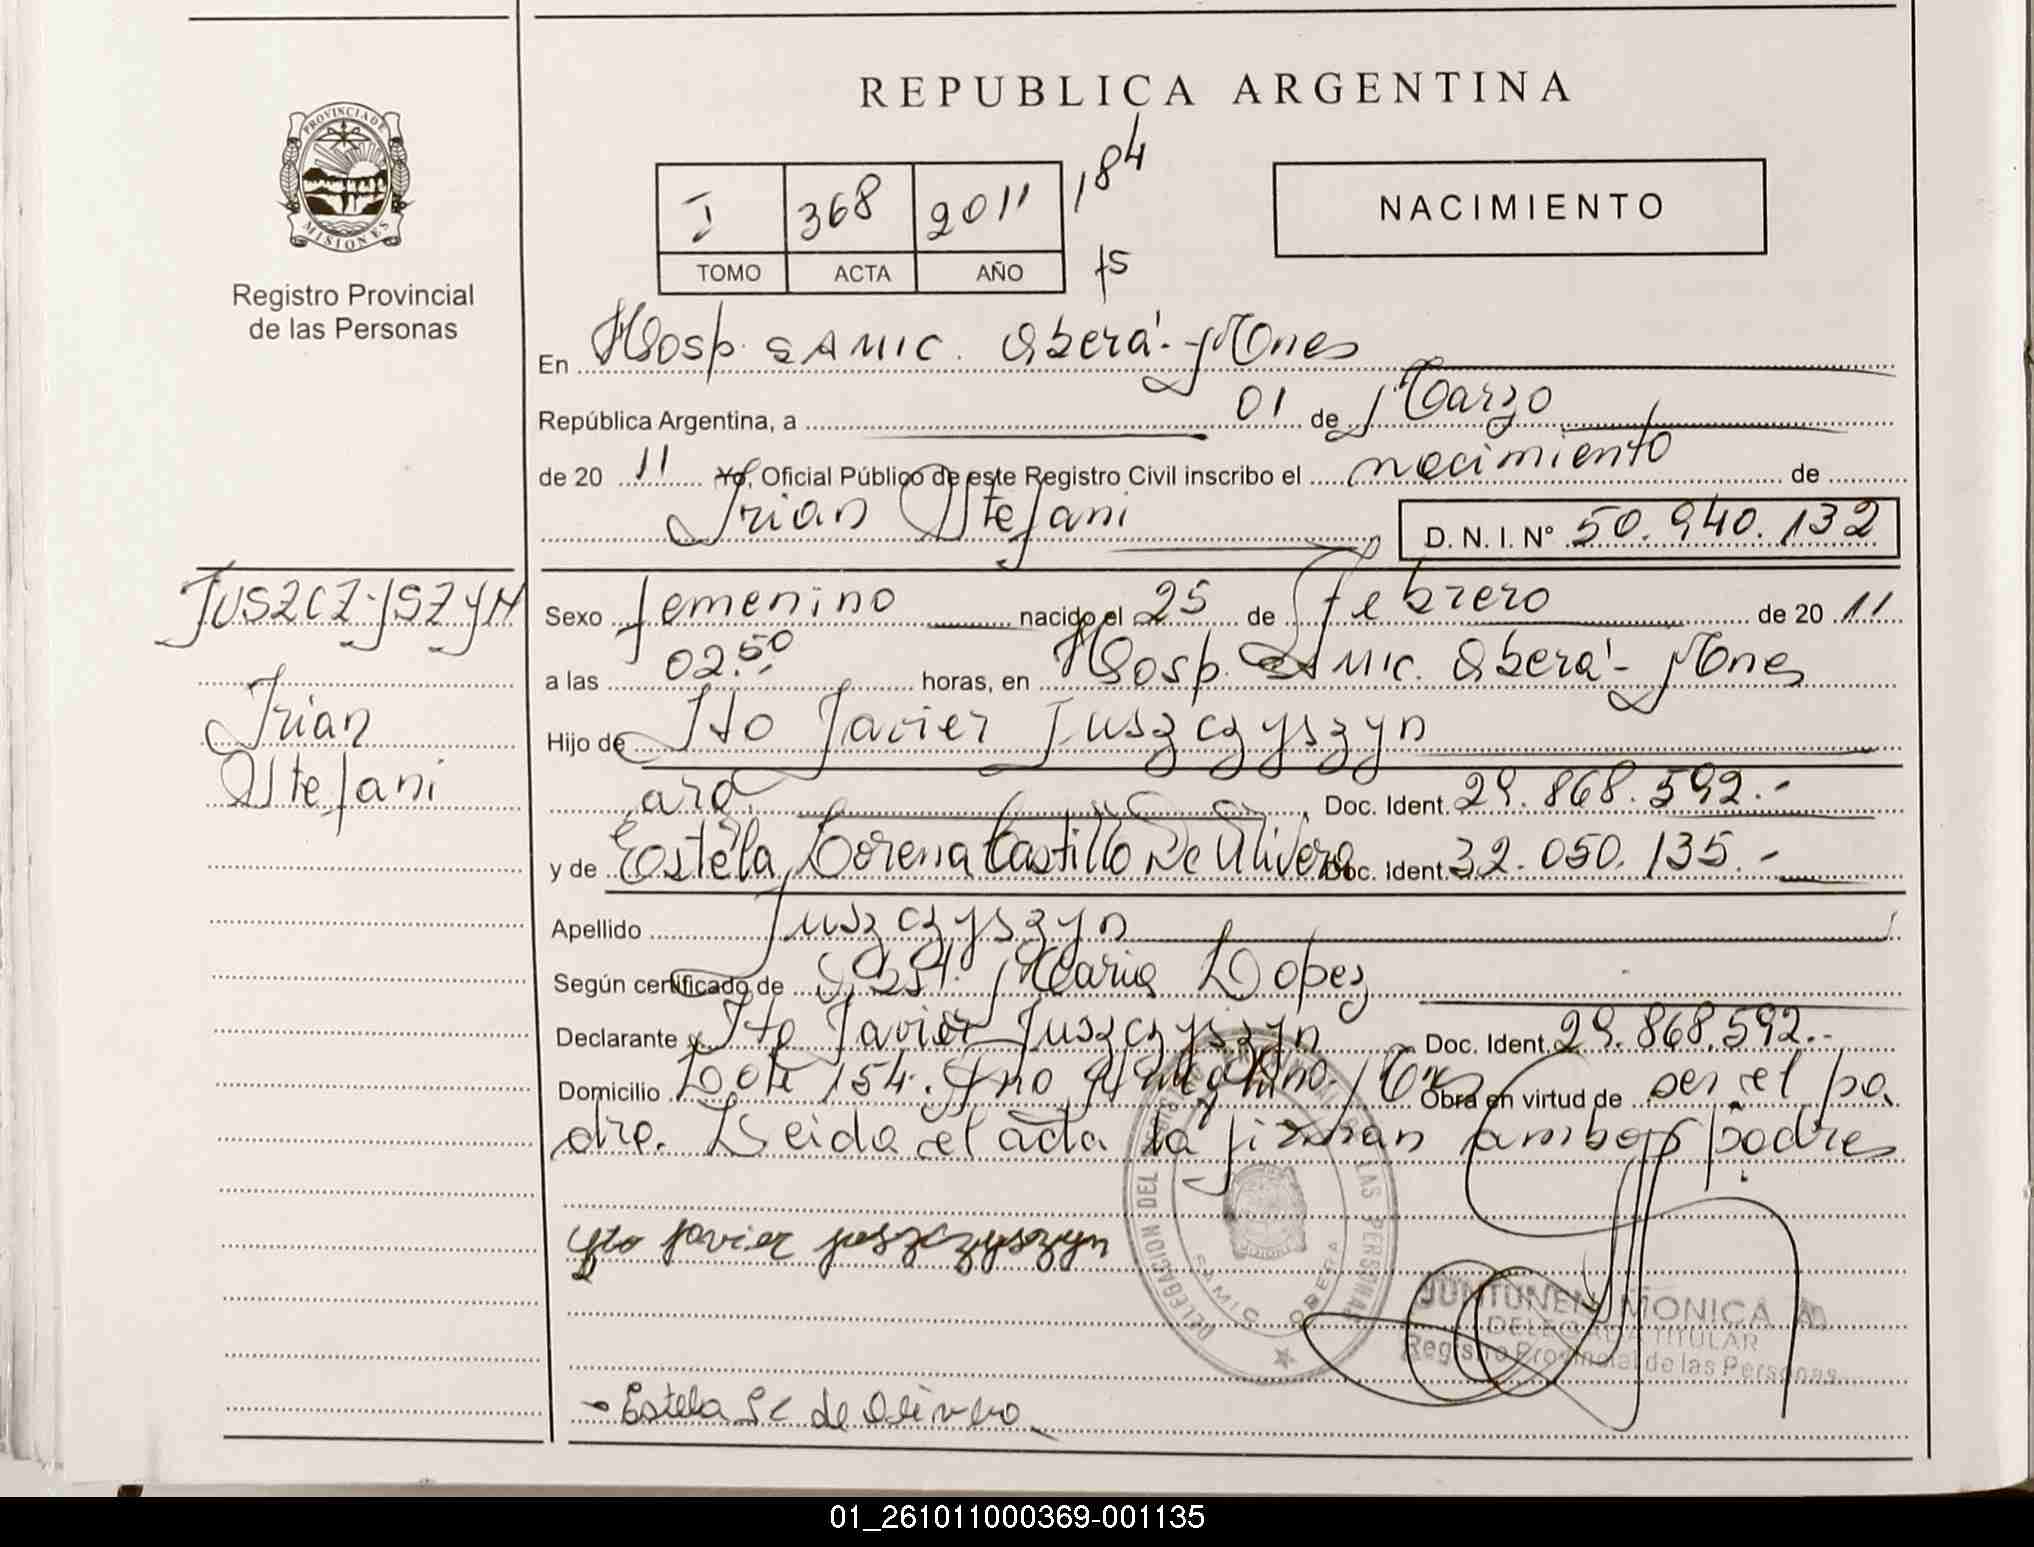 REPUBLICA ARGENTINA
PROVINCIA DE
MISIONES
Registro Provincial
de las Personas
I 368 2011 184
TOMO ACTA AÑO fs
NACIMIENTO
En Hosp. SAMIC. Oberá - Mnes
República Argentina, a 01 de Marzo
de 20 11 Yo, Oficial Público de este Registro Civil inscribo el nacimiento de
Irian Stefani D. N. I. Nº 50.940.132
JUSZCZYSZYN
Irian
Stefani
Sexo femenino nacido el 25 de febrero de 20 11
a las 02.50 horas, en Hosp. SAMIC. Oberá - Mnes
Hijo de Ito Javier Juszczyszyn
arg. Doc. Ident. 29.868.592.-
y de Estela Lorena Castillo De Olivera Doc. Ident. 32.050.135.-
Apellido Juszczyszyn
Según certificado de Obst. Maria Lopez
Declarante Ito Javier Juszczyszyn Doc. Ident. 29.868.592.-
Domicilio Lote 154. Obra en virtud de ser el pa
dre. Leida el acta la firman ambos padres
Ito Javier Juszczyszyn
DELEGACION DEL LAS PERSONAS
SAMIC OBERA
JUNTUNEN MONICA A
DELEGADA TITULAR
Registro Provincial de las Personas
- Estela de Olivera
01_261011000369-001135